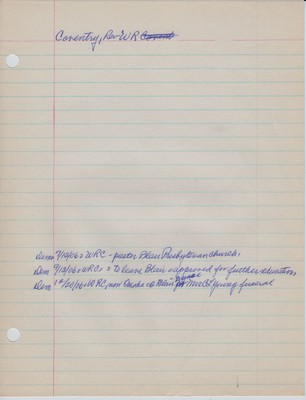 Coventry, Rev W R
Dem 7/12/06: WRC - pastor Blair Presbyterian church.
Dem 9/13/06: WRC: to leave Blair & approved for further education
Dem 12/20/06: WRC, now back to Blair for Mrs Young funeral